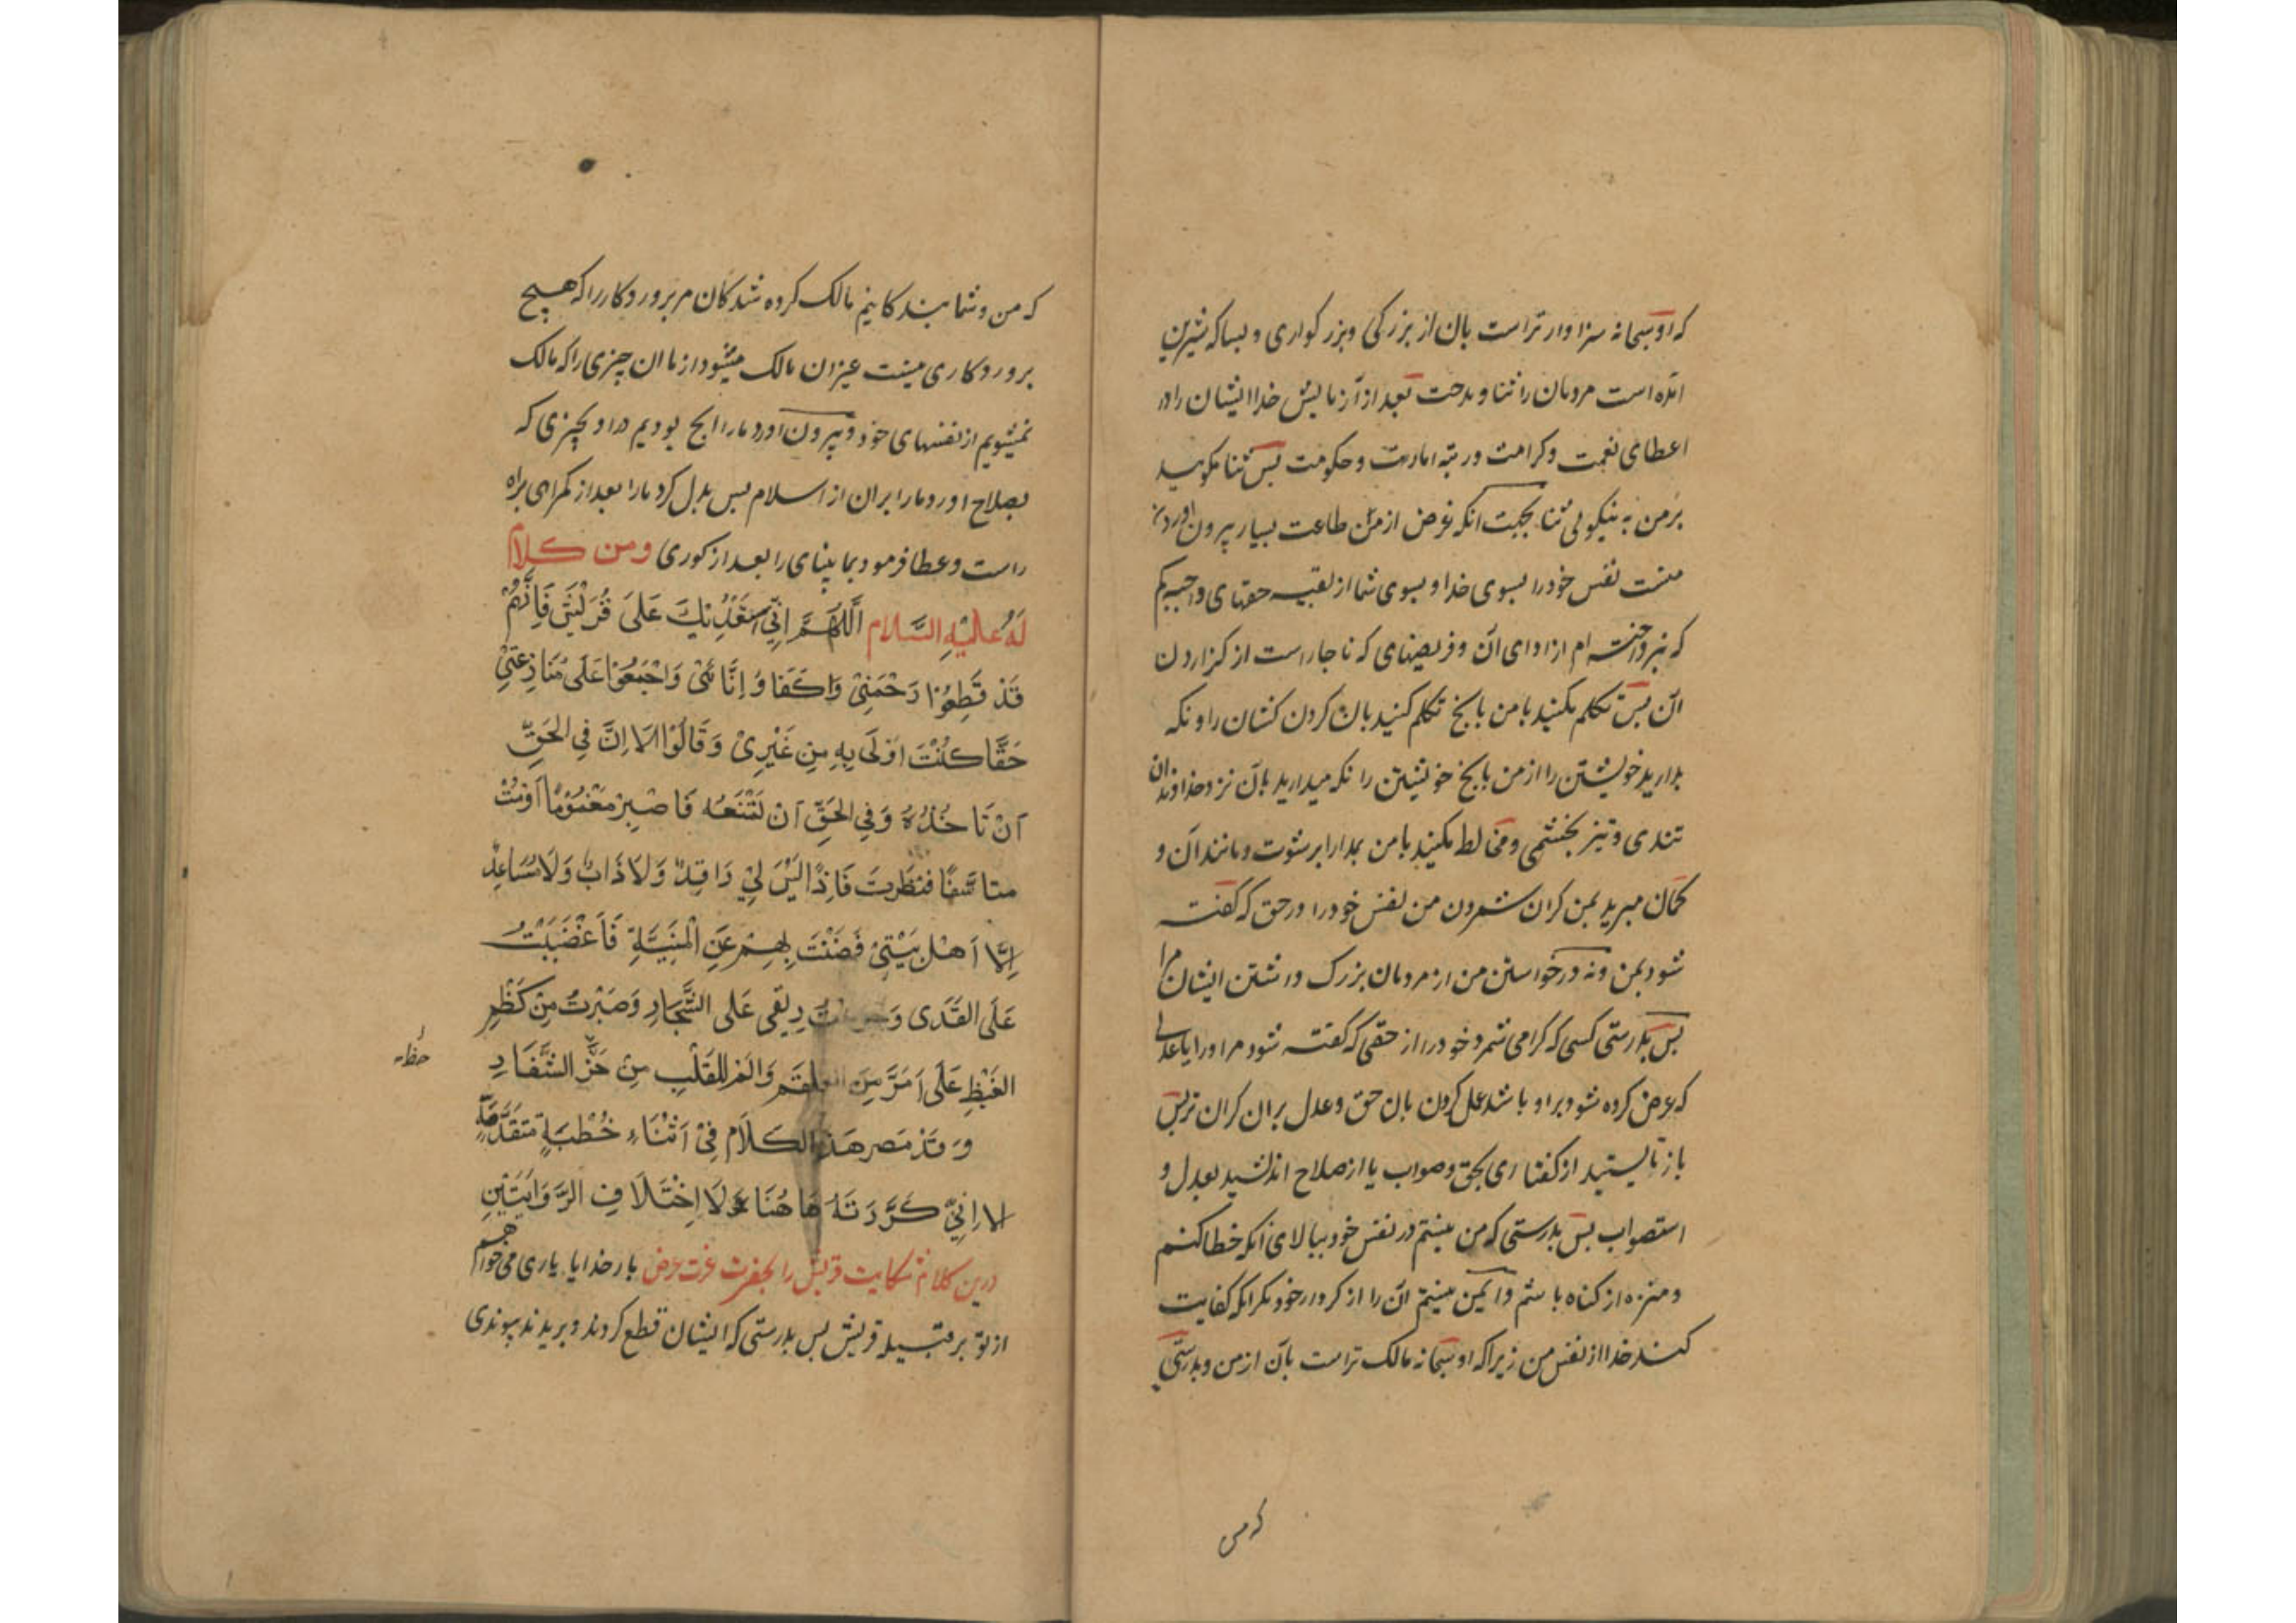 که او سبحانه سزاوارتر است بان از بزرکی و بزرکواری و بسا که شیرین
امده است مردمان را ثنا و مدحت بعد از آزمایش خدا ایشان را در
اعطای نعمت و کرامت و رتبه امارت و حکومت پس ثنا مکویید
بر من به نیکویی ثنا بجهت انکه غرض از من طاعت بسیار بیرون اوردن
منست نفس خود را بسوی خدا و بسوی شما از بقیه حقهای واجبه
که نپرداخته ام از ادای آن و فریضهای که ناچار است از کزاردن
ان پس تکلم مکنید با من بانچ تکلم کنید بان کردن کشان را و نکه
بدارید خویشتن را از من بانچ خویشتن را نکه میدارید بآن نزد خداوندان
تندی و تیز بخشمی و مخالطه مکنید با من بمدارا برشوت و مانند آن و
کمان مبرید بمن کران شمردن من نفس خود را در حق که کفته
شود بمن و نه درخواستن من از مردمان بزرک داشتن ایشان مرا
پس بدرستی کسی که کرامی شمرد خود را از حقی که کفته شود مر او را یا عدلی
که عرض کرده شود بر او باشد عمل کردن بان حق و عدل بر ان کران تر پس
باز نایستید از کفتاری بحق و صواب یا از صلاح اندیشید بعدل و
استصواب پس بدرستی که من نیستم در نفس خود ببالای انکه خطا کنم
و منزه از کناه باشم و ایمن نیستم ان را از کردار خود مکر انکه کفایت
کند خدا از نفس من زیرا که او سبحانه مالک تر است بآن از من و بدرستی
که من
که من و شما بندکانیم مالک کرده شدکان مر پروردکار را که هیچ
پروردکاری نیست غیر ان مالک میشود از ما ان چیزی را که مالک
نمیشویم از نفسهای خود و بیرون اورد ما را از انچ بودیم در او بچیزی که
بصلاح اورد ما را بران از اسلام پس بدل کرد ما را بعد از کمراهی براه
راست و عطا فرمود بما بینای را بعد از کوری ومن کلام
لَهُ عَلَيْهِ السَّلام اَللّهُمَّ اِنِّي اَسْتَعْدِيكَ عَلَى قُرَيْشٍ فَاِنَّهُمْ
قَدْ قَطَعُوْا رَحْمَنِيْ وَاكَفَاوُ اِنَّائِيْ وَاجْمَعُوْا عَلَى مُنَازِعَتِيْ
حَقًّا كُنْتَ اَوْلَى بِهِ مِنِ غَيْرِيْ وَقَالُوْا اَلَا اِنَّ فِي الحَقِّ
اَنْ تَاخُذَهُ وَفِي الحَقِّ اَنْ تَمْنَعُه فَاصْبِرْ مَغْمُوْمًا اَوْمُتْ
متاسّفًا فنَظَرتَ فَاِذًا لَيْسَ لِيْ رَافِدٌ وَلَا ذَابٌ وَلَا مُسَاعِدٌ
اِلّا اَهْل بَيْتِيْ فَضَنْتَ بِهِمْ عَنِ الْمَنِيَّةِ فَاَغْضَيْتُ
عَلَى القَذَى وَجرعتُ رِيقي عَلَى الشَّجَا وَصَبَرْتُ مِنْ كَظْمِ
الغَيْظِ عَلَى اَمَرَّ مِنَ العلقَم وَالَم للقَلْبِ مِنْ حَزِّ الشِّفَارِ
وَقَدْ مَصر هَذا الكَلَام فِيْ اَثْنَاءِ خُطْبَةٍ مُتَقَدِّمَةٍ
الا اِنِّيْ كَرَّرْتَهُ هَا هُنَا لَا اِخْتَلَافِ الرِّوَايَتَيْنِ
درین کلام شکایت قریش را بحضرت عزت عرض بار خدایا یاری می خواهم
از تو بر قبیله قریش پس بدرستی که ایشان قطع کردند و بریدند پیوندی